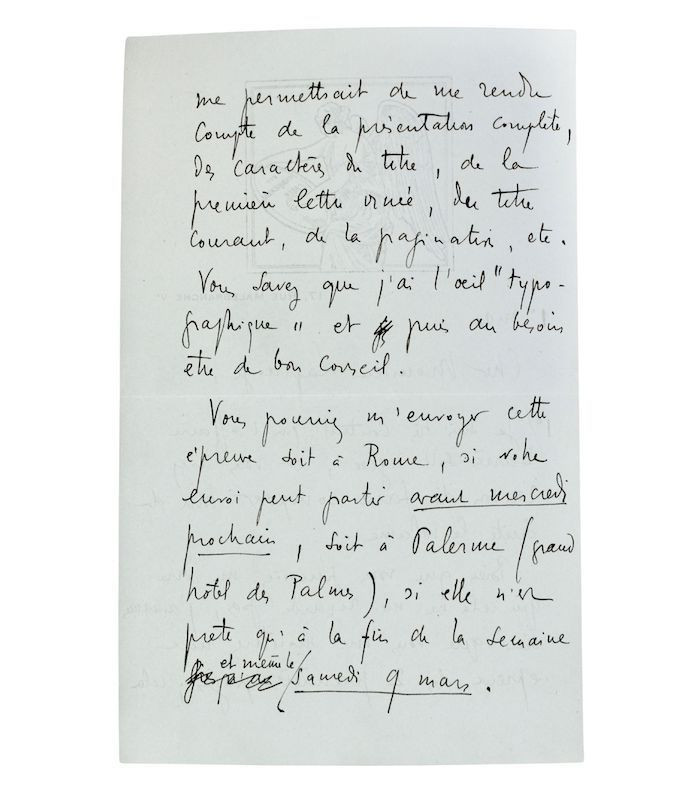 me permettrait de me rendre
compte de la présentation complète,
des caractères du titre, de la
première lettre ornée, du titre
courant, de la pagination, etc.
Vous savez que j'ai l'oeil "typo-
graphique" et puis au besoin
être de bon conseil.
Vous pourriez m'envoyer cette
épreuve soit à Rome, si votre
envoi peut partir avant mercredi
prochain, soit à Palerme (grand
hôtel des Palmes), si elle n'est
prête qu'à la fin de la semaine
et même le
samedi 9 mars.